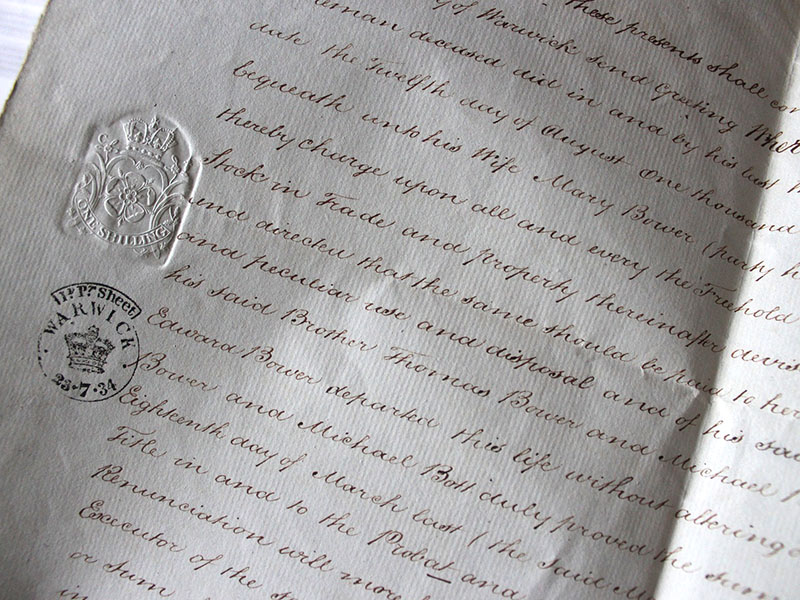 These presents shall con
of Warwick send Greeting Wher
deceased did in and by his last W
date the Twelfth day of August One thousand
bequeath unto his Wife Mary Bower (party h
thereby charge upon all and every the Freehold
Stock in Trade and property thereinafter devis
and directed that the same should be paid to her
and peculiar use and disposal and of his sai
his said Brother Thomas Bower and Michael
Edward Bower departed this life without altering o
Bower and Michael Bott duly proved the same
Eighteenth day of March last (the said M
Title in and to the Probat and
Renunciation will more
Executor of the s
or sum
in
ONE SHILLING
11d. Pr. Sheet
WARWICK
23·7·34